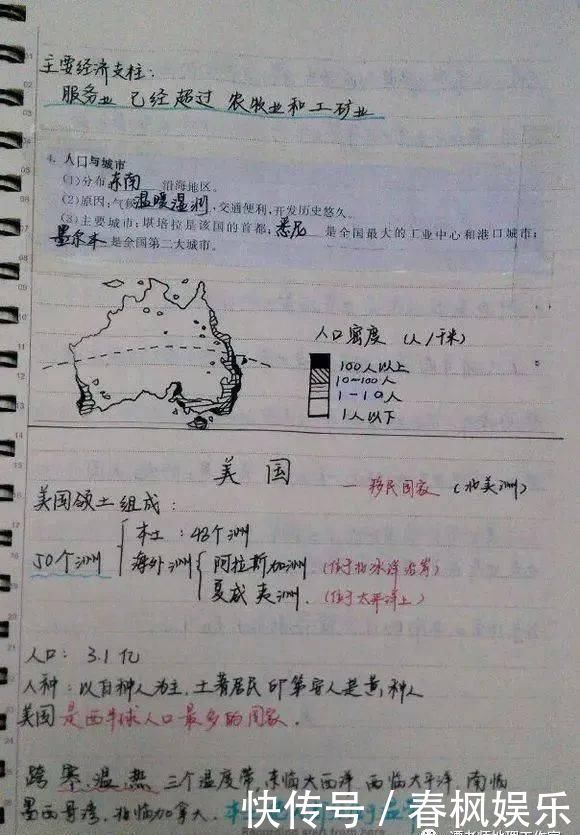 主要经济支柱:
服务业 已经超过 农牧业和工矿业
4. 人口与城市
(1)分布东南 沿海地区。
(2)原因:气候温暖湿润,交通便利,开发历史悠久。
(3)主要城市:堪培拉是该国的首都;悉尼 是全国最大的工业中心和港口城市;
墨尔本 是全国第二大城市。
人口密度 (人/千米)
100人以上
10~100人
1-10人
1人以下
美国
移民国家 (北美洲)
美国领土组成:
本土:48个洲
50个洲
海外洲
阿拉斯加洲 (位于北冰洋沿岸)
夏威夷洲. (位于太平洋上)
人口: 3.1亿
人种:以白种人为主,土著居民印第安人是黄种人
美国是西半球人口最多的国家.
跨寒.温.热 三个温度带,东临大西洋 西临太平洋 南临
墨西哥湾,北临加拿大.
快传号/春枫娱乐